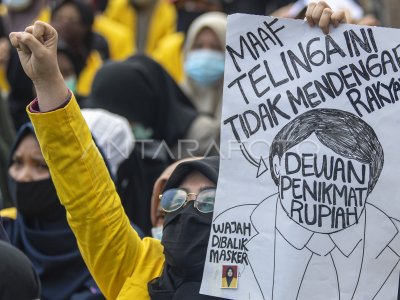 MAAF
TELINGA INI
TIDAK MENDENGAR
RAKYAT
DEWAN
PENIKMAT
RUPIAH
WAJAH
DIBALIK
MASKER
ANTARAFOTO